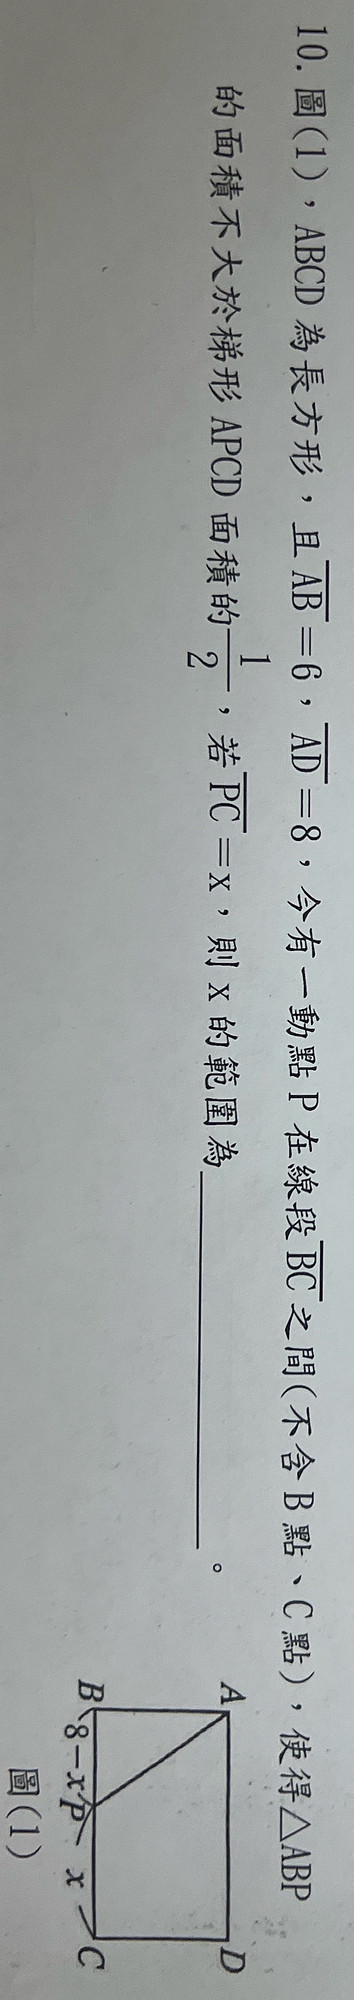 10. 圖(1)，ABCD 為長方形，且 \overline{AB}=6，\overline{AD}=8，今有一動點 P 在線段 \overline{BC} 之間(不含 B 點、C 點)，使得△ABP
的面積不大於梯形 APCD 面積的 \frac{1}{2}，若 \overline{PC}=x，則 x 的範圍為＿＿＿＿＿＿＿＿。
A D
B 8-x P x C
圖(1)